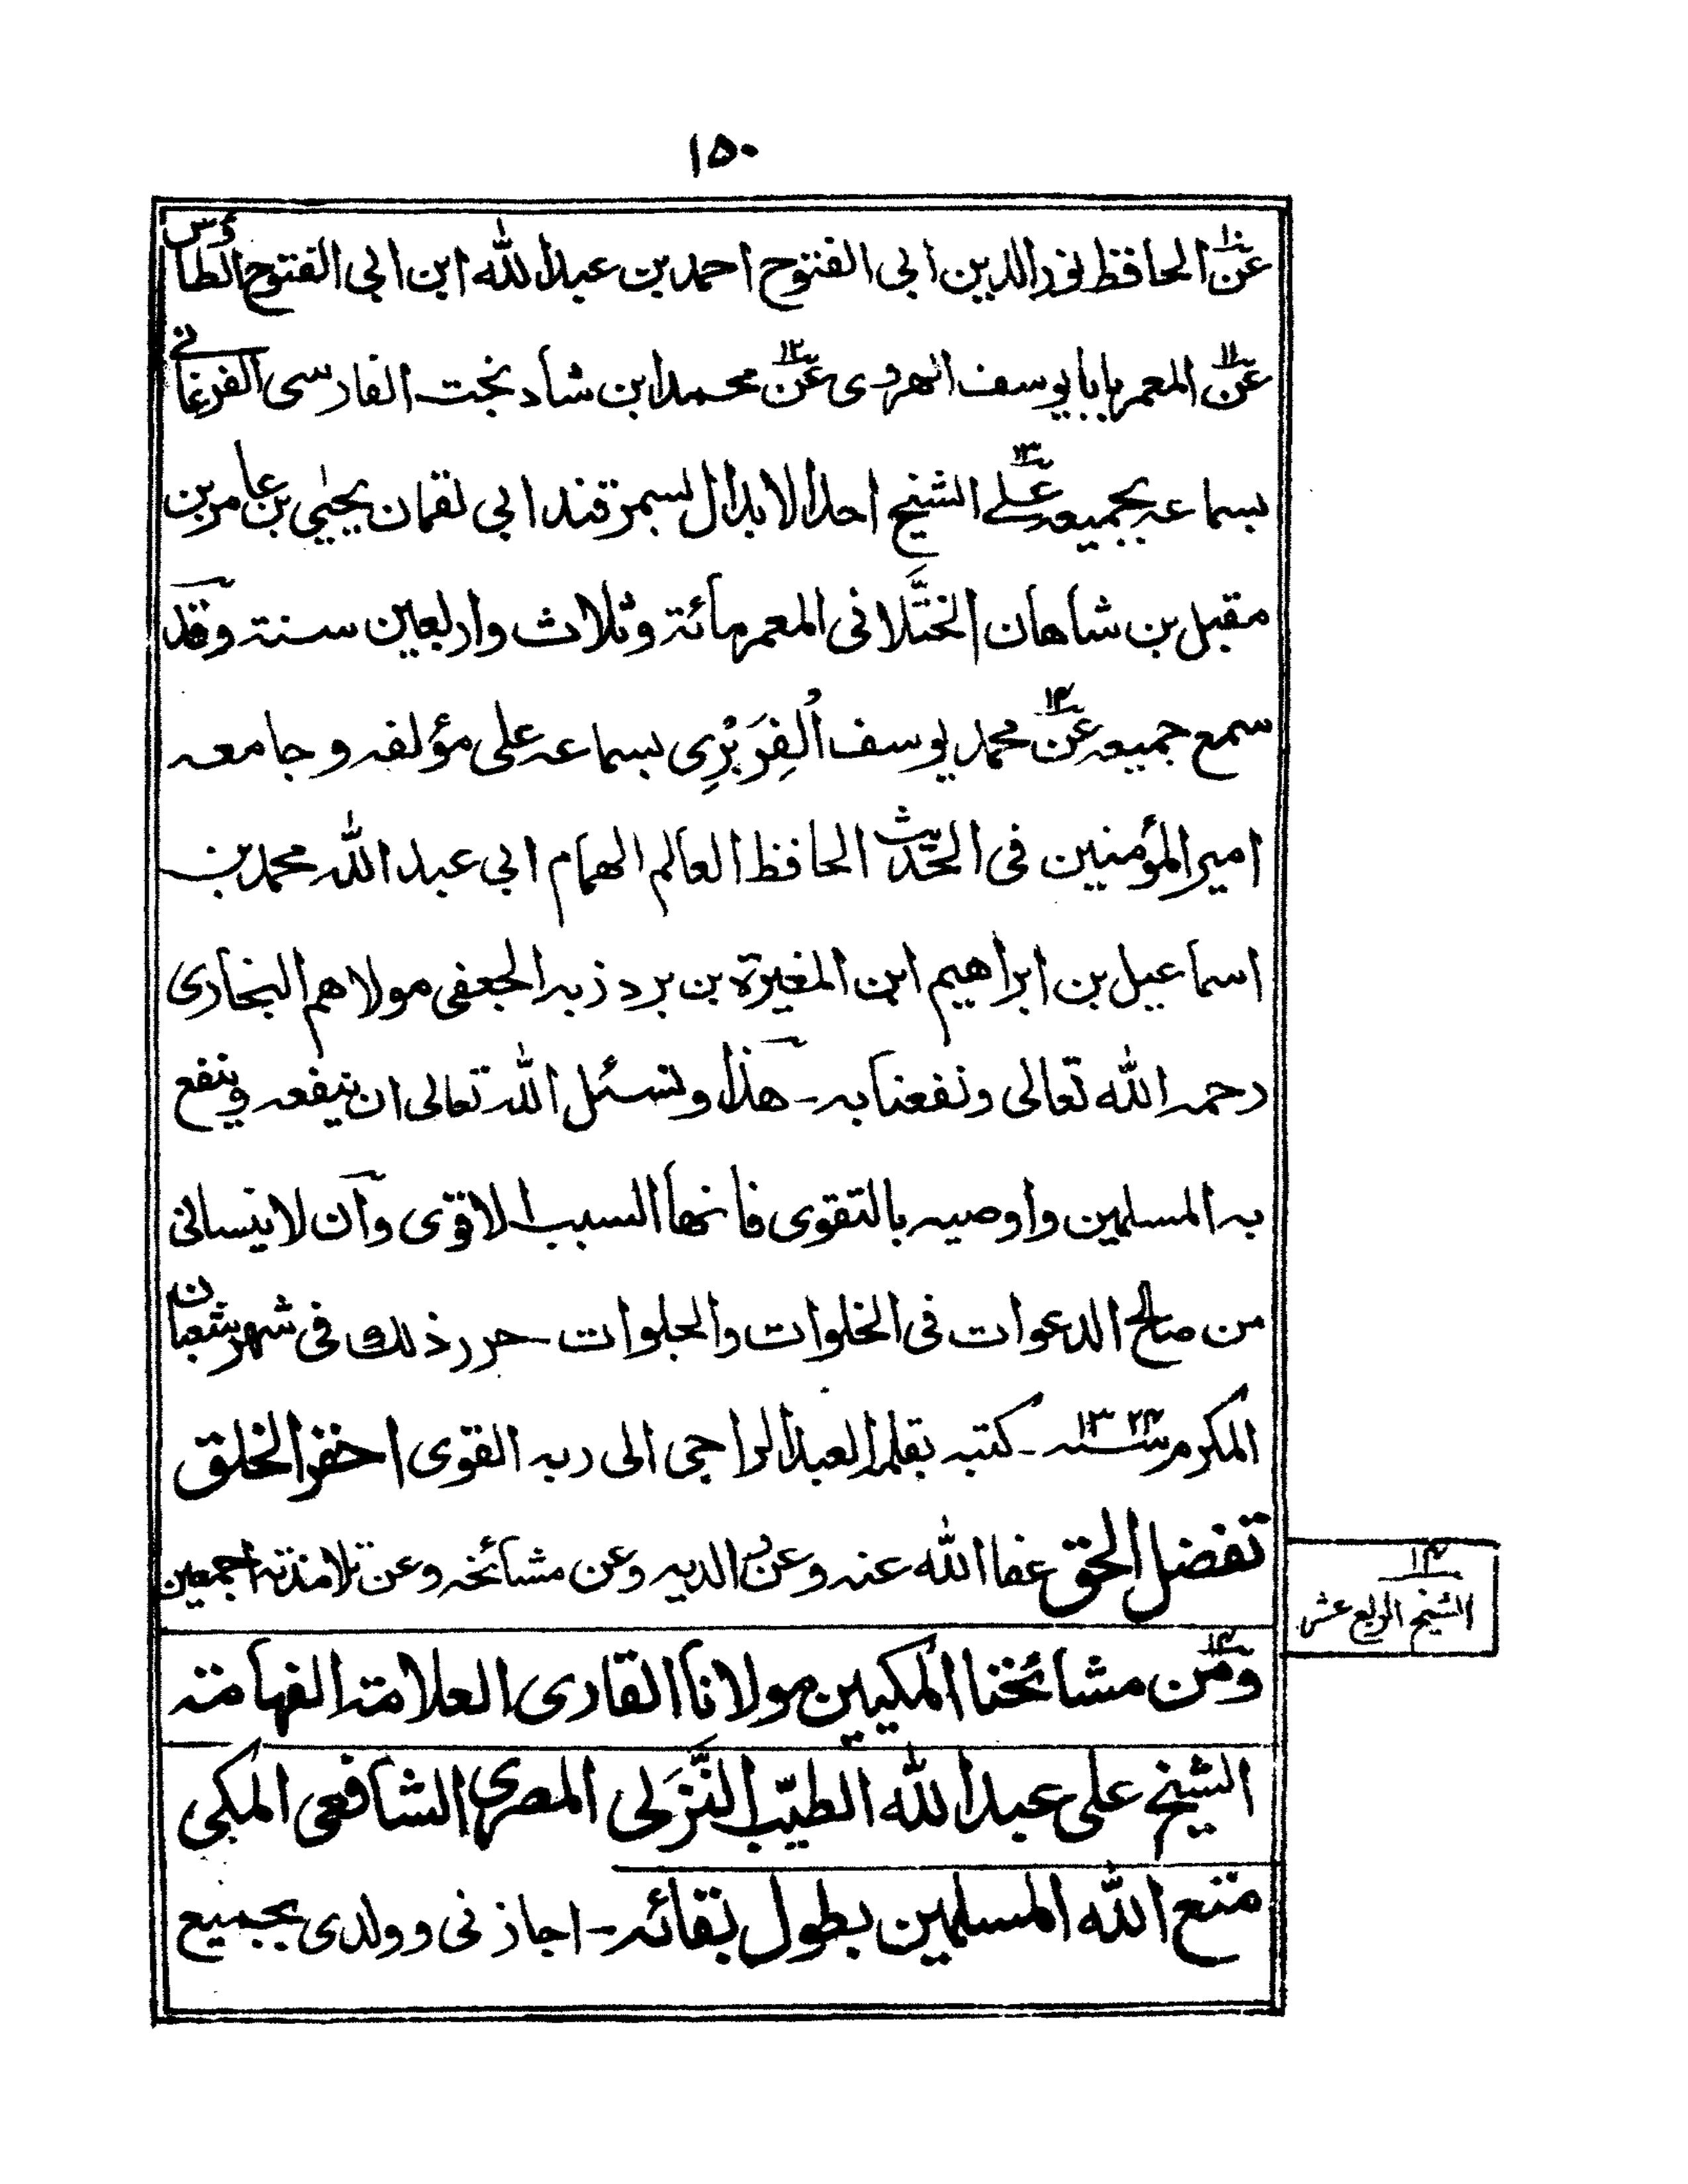 ١٥٠
عن١٠ الحافظ نور الدين ابى الفتوح احمد بن عبد الله ابن ابى الفتوح الطاؤسى
عن١١ المعمر بابا يوسف الهروى عن١٢ محمد ابن شاد بخت الفارسى الفرغانى
بسماعه بجميعه على١٣ الشيخ احد الابدال بسمرقند ابى لقمان يحيٰى بن عامر بن
مقبل بن شاهان الختَّلانى المعمر مائة وثلاث واربعين سنة وقد
سمع جميعه عن١٤ محمد يوسف الفِرَبْرِى بسماعه على مؤلفه وجامعه
امير المؤمنين فى الحديث الحافظ العالم الهمام ابى عبد الله محمد بن
اسماعيل بن ابراهيم ابن المغيرة بن بردزبه الجعفى مولاهم البخارى
رحمه الله تعالى ونفعنا به - هذا ونسئل الله تعالى ان ينفعه وينفع
به المسلمين واوصيه بالتقوى فانها السبب الاقوى وان لا ينسانى
من صالح الدعوات فى الخلوات والجلوات - حرر ذلك فى شهر شعبان
المكرم سنه ١٣٢٤ - كتبه بقلمه العبد الراجى الى ربه القوى احقر الخلق
تفضل الحق عفا الله عنه وعن والديه وعن مشائخه وعن تلامذته اجمعين
١٤ الشيخ الرابع عشر
ومن١٤ مشائخنا المكيين مولانا القارى العلامة الفهامة
الشيخ على عبد الله الطيّب النَّزَلى المصرى الشافعى المكى
متع الله المسلمين بطول بقائه - اجازنى وولدى بجميع